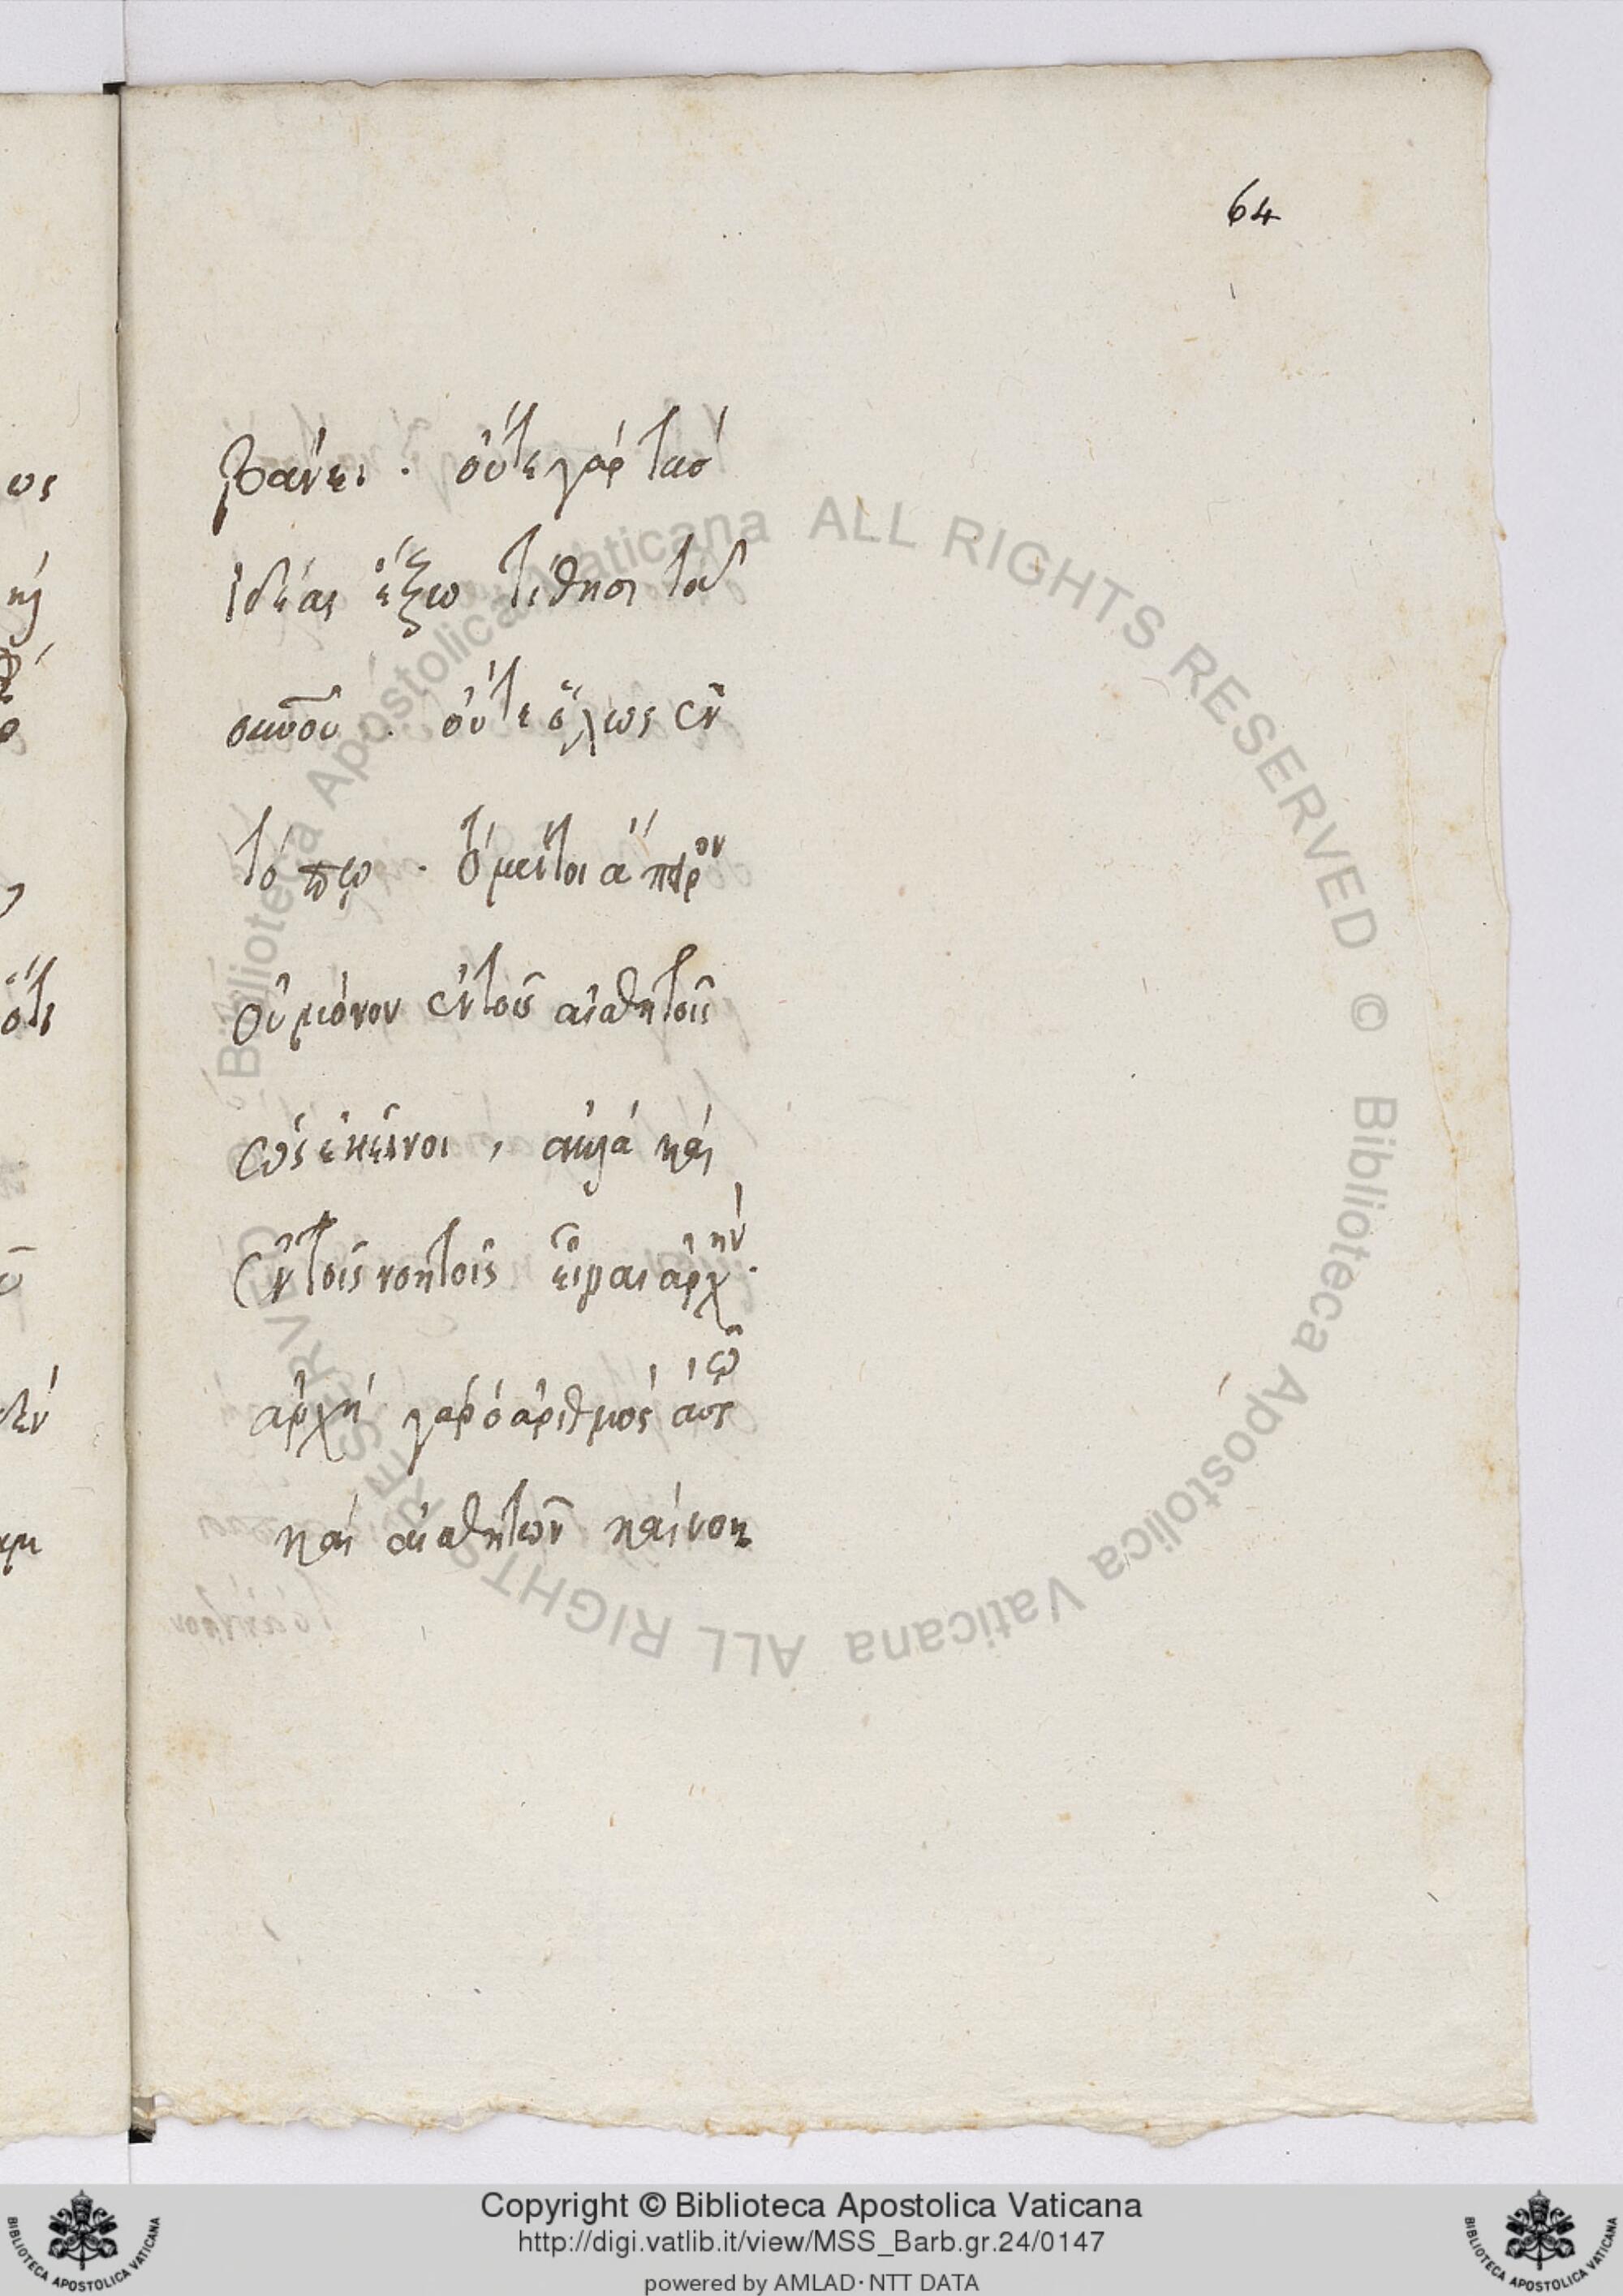 64
βάνει . οὔτε γάρ τάσ
ἰδέας ἔξω τίθησι τοῦ
οὐνοῦ . οὔτε ὅλως ἐν
τόπῳ . τό μέντοι ἄπειρον
οὐ μόνον ἐν τοῖς αἰσθητοῖς
ὡς ἐκεῖνοι , ἀλλά καί
ἐν τοῖς νοητοῖς εἶναι ἀρχήν .
ἀρχή γάρ ὁ ἀριθμός αὐτῷ
καί αἰσθητῶν καί νοη
ALL RIGHTS RESERVED © Biblioteca Apostolica Vaticana ALL RIGHTS RESERVED © Biblioteca Apostolica Vaticana
Copyright © Biblioteca Apostolica Vaticana
http://digi.vatlib.it/view/MSS_Barb.gr.24/0147
powered by AMLAD·NTT DATA
BIBLIOTECA APOSTOLICA VATICANA
BIBLIOTECA APOSTOLICA VATICANA